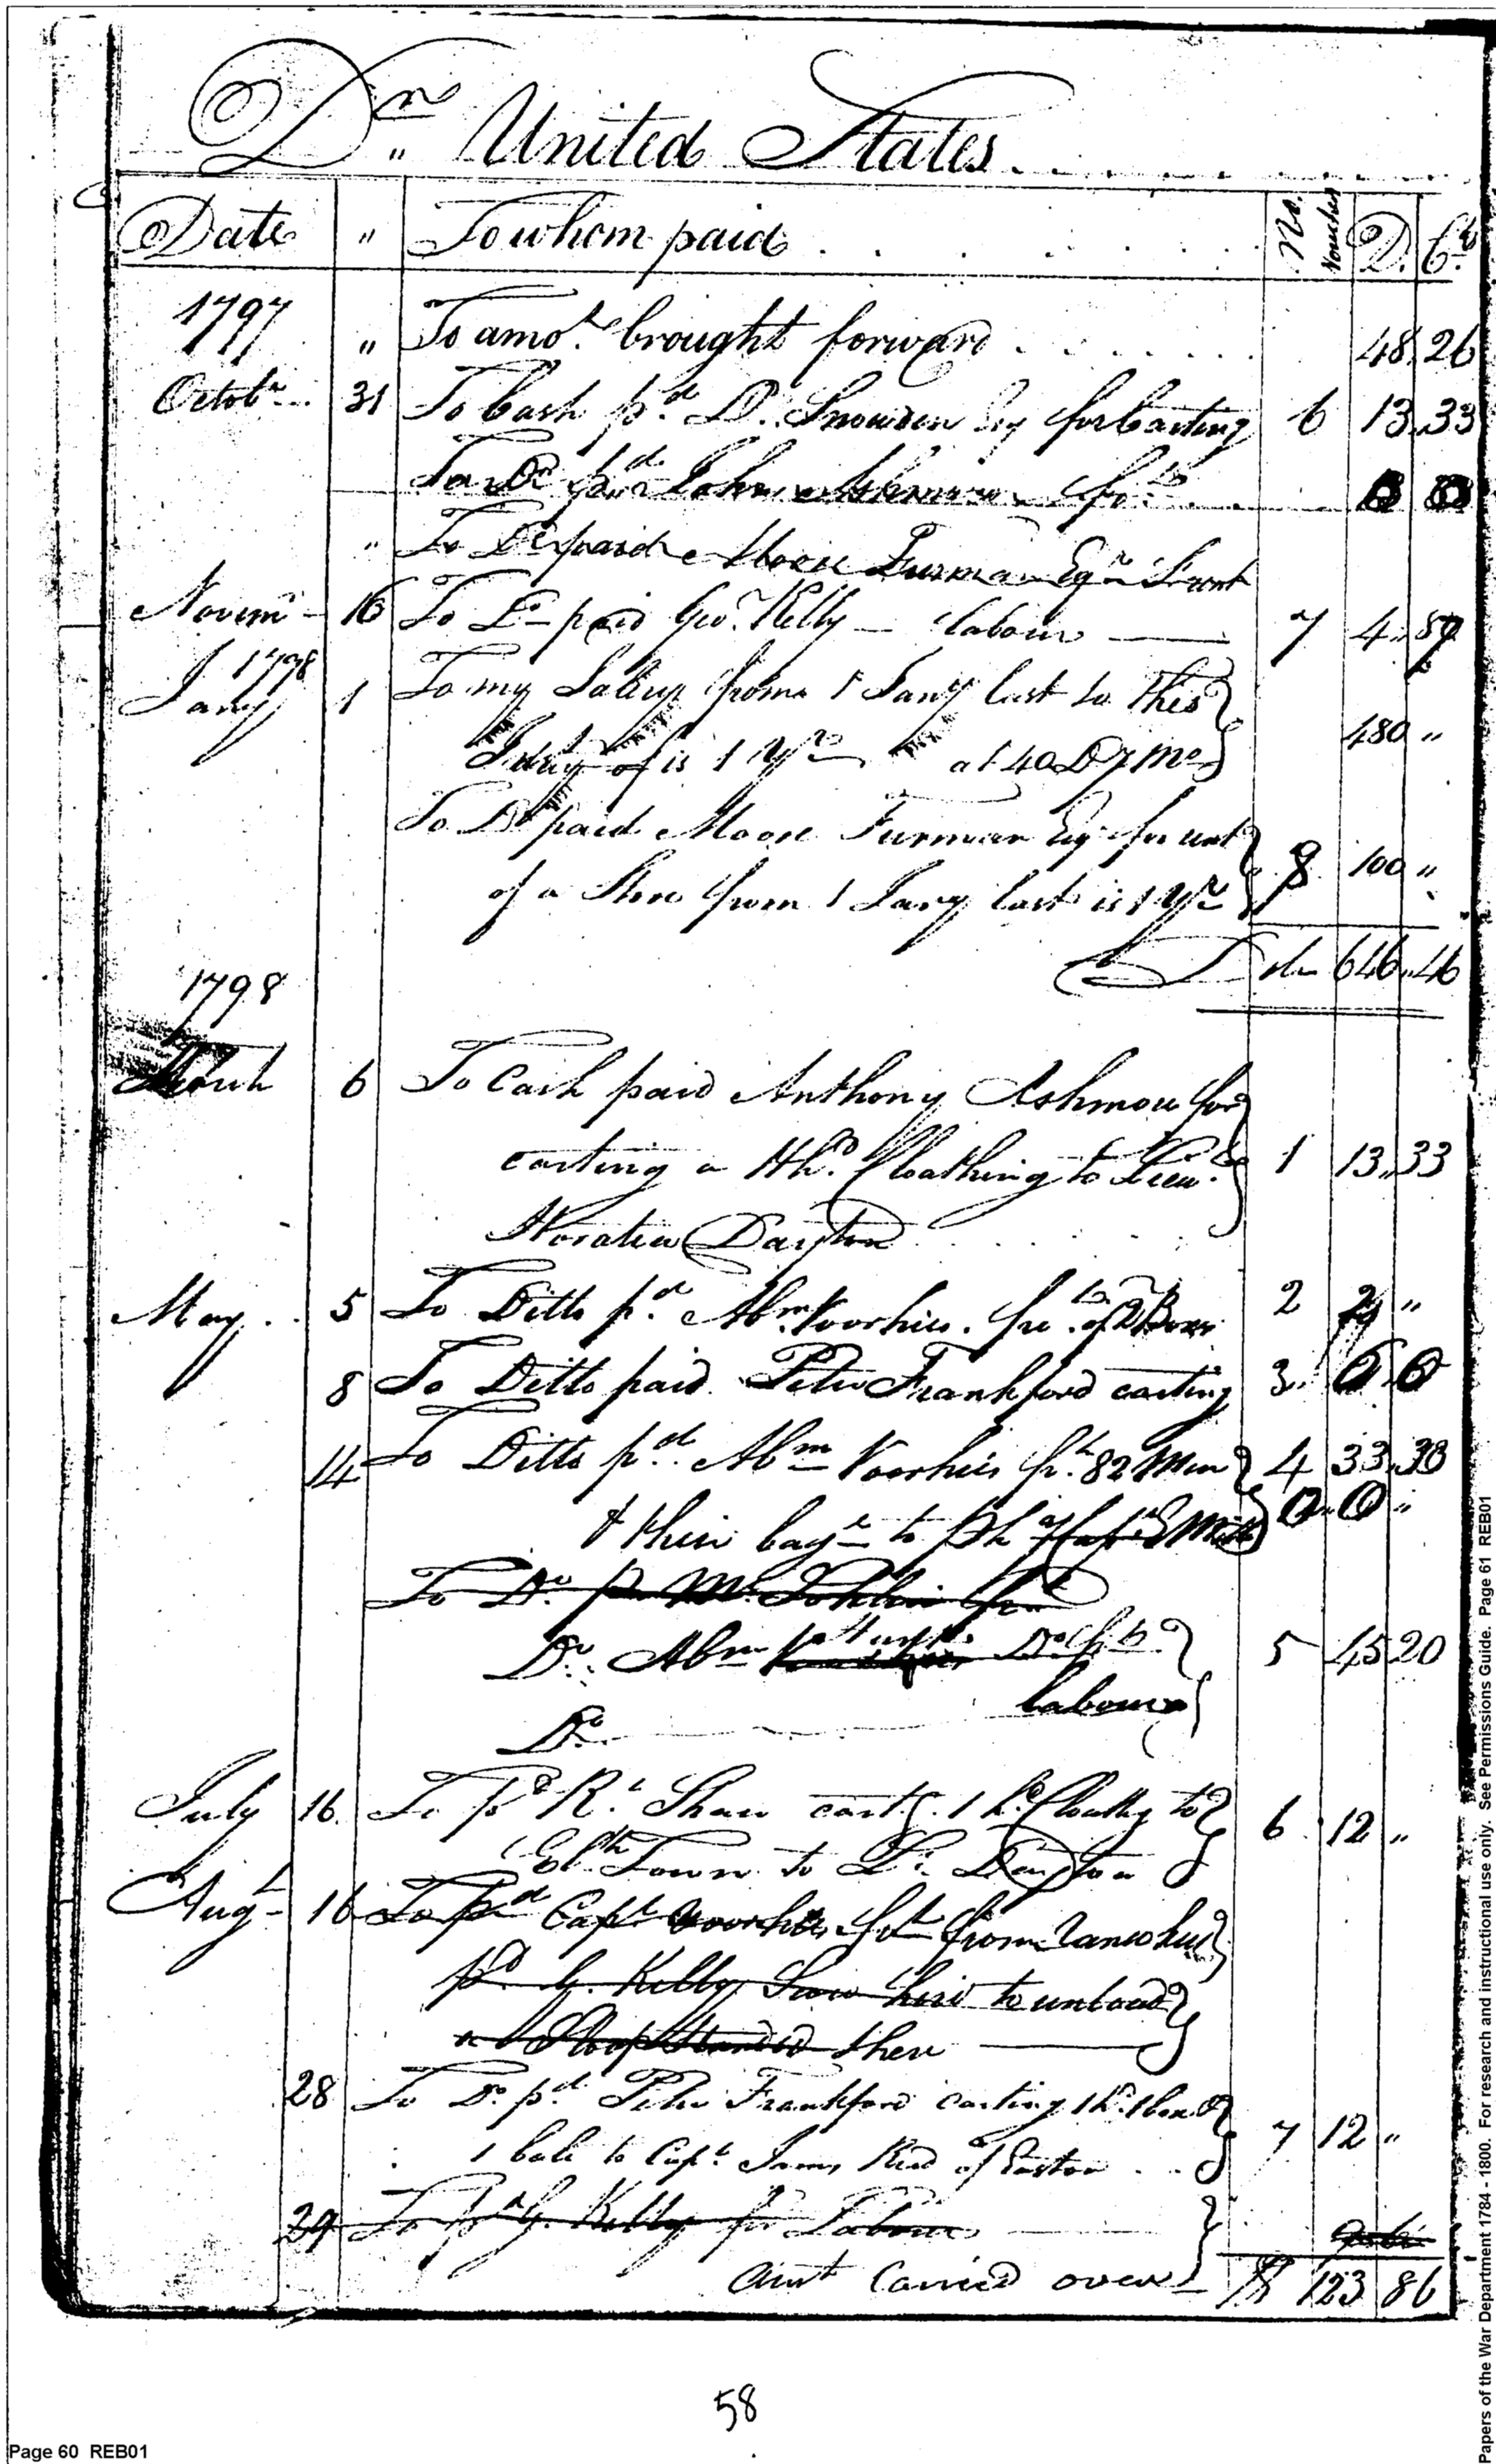 Dr „ United States
Date „ To whom paid No. Voucher D. Cts
1797 „ To amot. brought forward 48. 26
Octobr 31 To Cash pd. D. Snowden Esq for Carting 6 13. 33
To Do pd John
„ To Do paid Moore Furman Esqr Frent
Novemr 16 To Do paid Geo. Kelly labour 7 4. 87
1798
Jany 1 To my Salery from 1 Jany last to this
Jany is 1 Yr at 40 D p mo 480 „
To Do paid Moore Furman Esqr for rent
of a Store from 1 Jany last is 1 Yr 8 100 „
Dolr 646. 46
1798
March 6 To Cash paid Anthony Ashmore for
carting a Hhd. Cloathing to Lieu.
Horatio Dayton 1 13. 33
May 5 To Ditto pd. Abm. Voorhies. frt. of 2 Boxes 2 2 „
8 To Ditto paid Peter Frankford carting 3. 6. 0
14 To Ditto pd. Abm Voorhies frt. 82 Men 4 33. 33
& thier bage to Ph
To Do p Mc
Do. Abm Do frt
labour 5 45 20
Do.
July 16. To pd Rt. Shaw cartg. 1 hd. Cloathg to
Elth Town to Lt. Dayton 6 12 „
Augt 16 To pd Capt Voorhies frt from
pd G. Kelly Scow hire to unload
a Sloop Stranded ther
28 To Do. pd. Peter Frankford carting 1 hd. 1 box &
1 bale to Capt. James Read at Easton 7 12 „
29 To pd G. Kelly for Labour
amt Carried over 123 86
58
Page 60 REB01
Papers of the War Department 1784 - 1800. For research and instructional use only. See Permissions Guide. Page 61 REB01